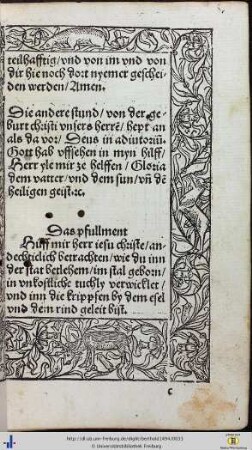 teilhafftig/vnd von im vnd von
dir hie noch dort nyemer geschei-
den werden/Amen.
Die ander stund/von der ge-
burt christi vnsers herrē/ hept an
als da vor/ Deus in adiutoriū.
Gott hab vffsehen in myn hilff/
Herr yle mir ze helffen/ Gloria
dem vatter/vnd dem sun/vñ dē
heiligen geist ꝛc.
Das pfulment
Hilff mir herr iesu christe/an-
dechticlich betrachten/wie du inn
der stat betlehem/im stal geborn/
in vnkostliche tuchly verwicklet/
vnd inn die krippfen by dem esel
vnd dem rind geleit bist.
c
http://dl.ub.uni-freiburg.de/diglit/berthold1494/0033
© Universitätsbibliothek Freiburg